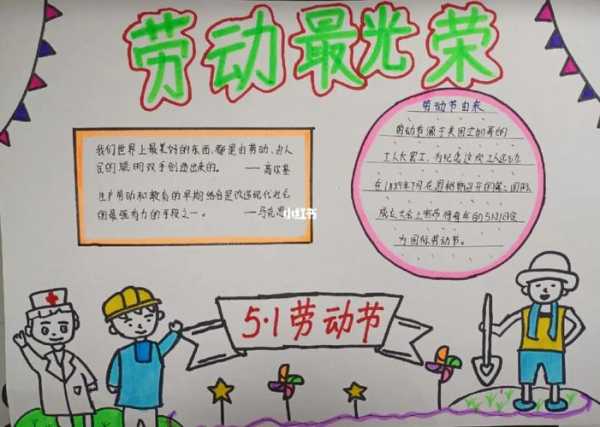 劳动最光荣
我们世界上最美好的东西,都是由劳动、由人
民的聪明双手创造出来的。 ——高尔基
生产劳动和教育的早期结合是改造现代社会
的最强有力的手段之一。 ——马克思
小红书
劳动节由来
劳动节源于美国芝加哥的
工人大罢工,为纪念这次工人运动
在1889年7月在
成立大会上宣布将每年的5月1日定
为国际劳动节。
5·1劳动节